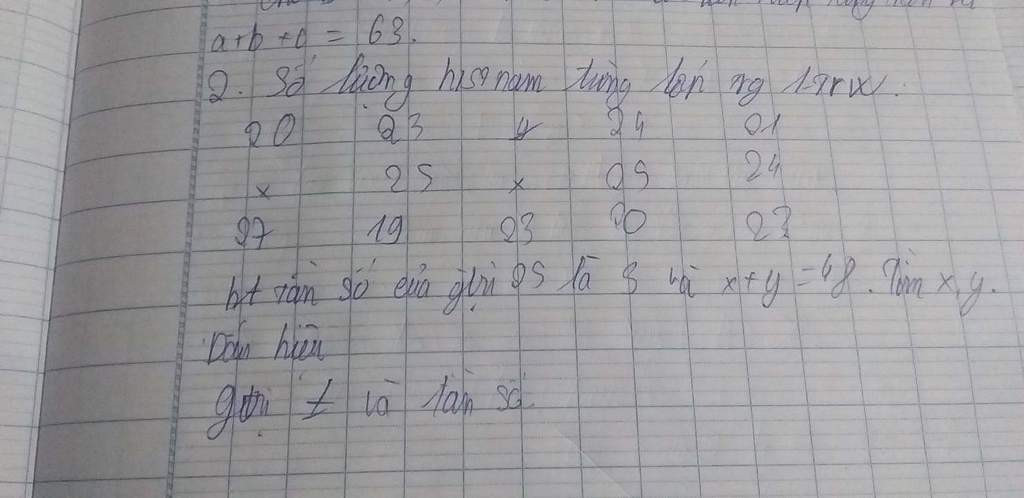 a+b+c = 63.
2. Số lượng hs nam từng lớp
20 23 y 24 21
x 25 x 25 24
27 19 23 20 22
bt tần số của gtrị 25 là 3 và x+y=48. Tìm x, y.
Dấu hiệu
gtrị và tần số.